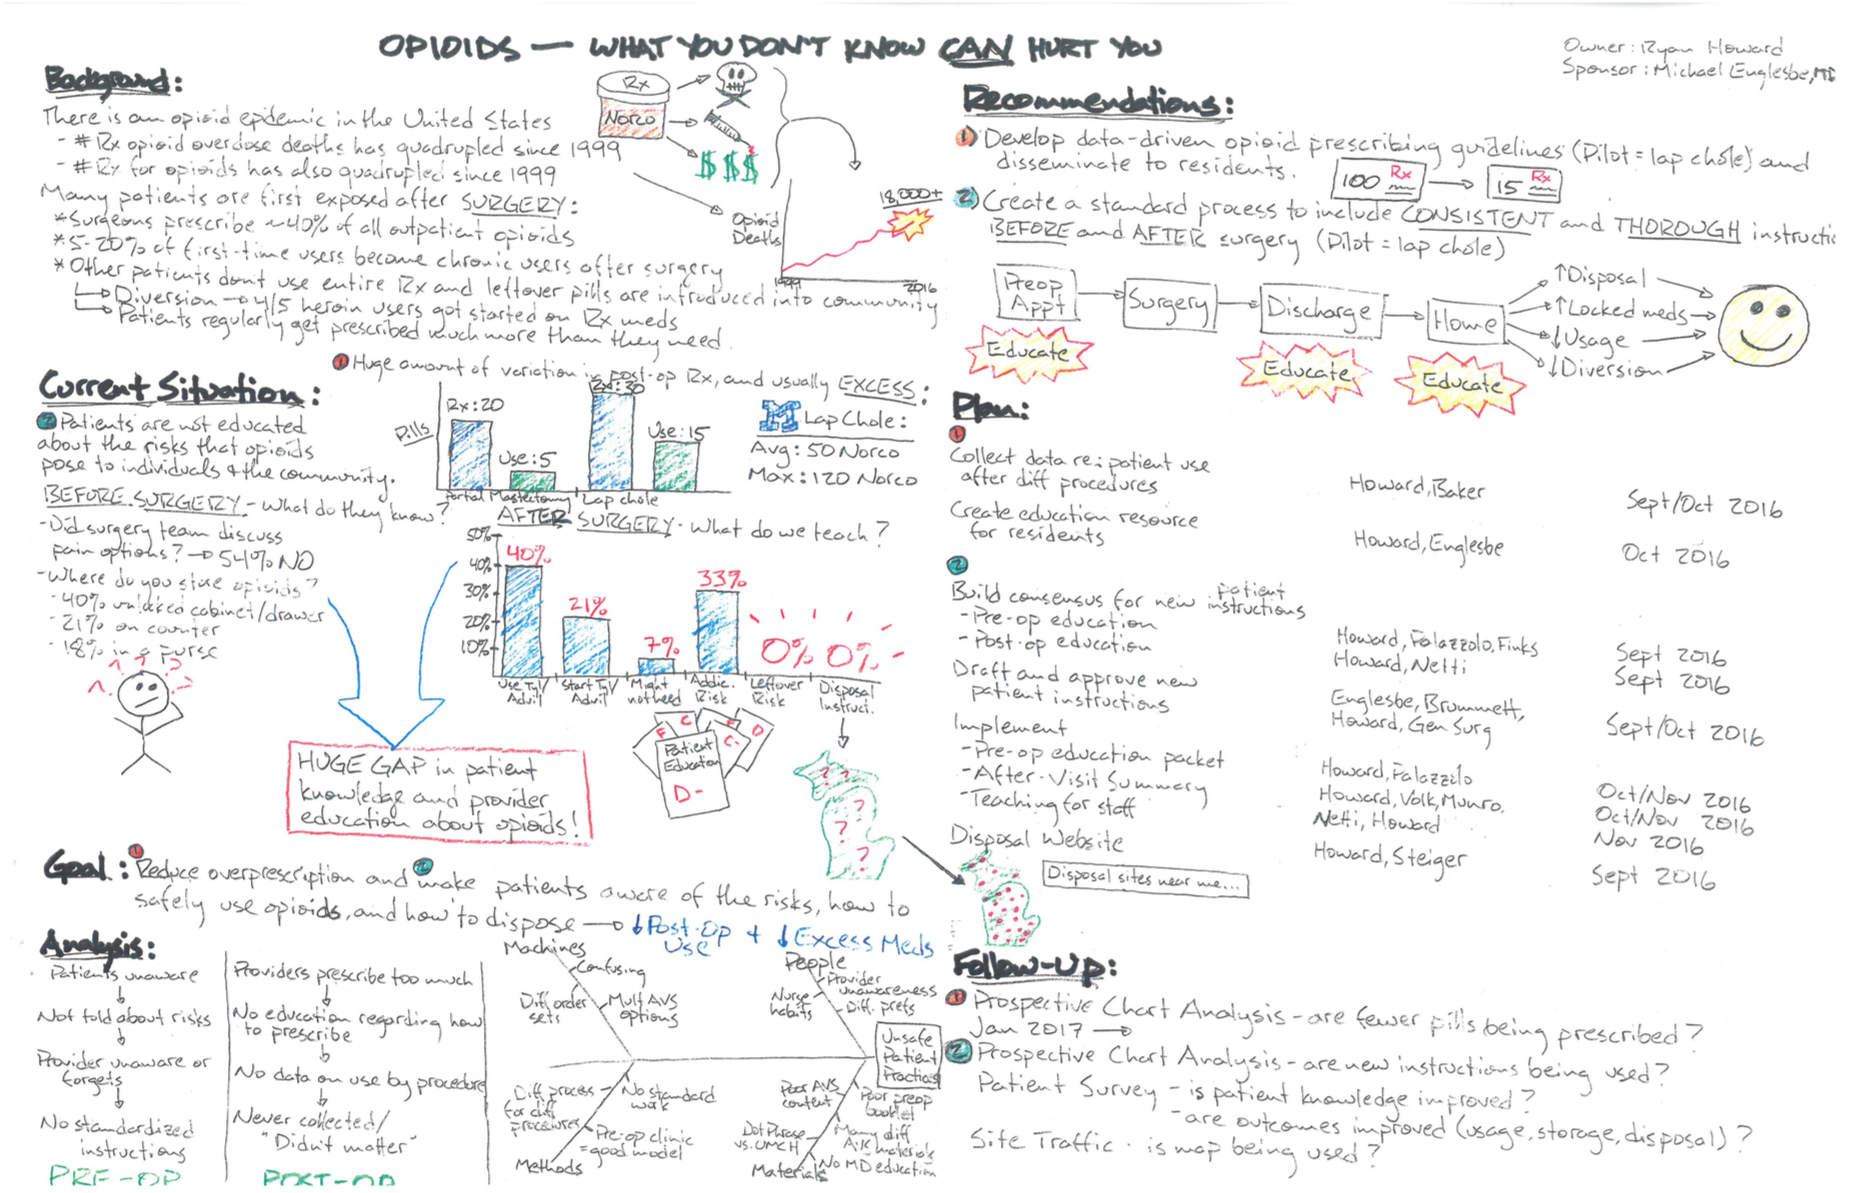 OPIOIDS — WHAT YOU DON'T KNOW CAN HURT YOU
Owner: Ryan Howard
Sponsor: Michael Englesbe, MD
Background:
There is an opioid epidemic in the United States
- # Rx opioid overdose deaths has quadrupled since 1999
- # Rx for opioids has also quadrupled since 1999
Many patients are first exposed after SURGERY:
* Surgeons prescribe ~40% of all outpatient opioids
* 5-20% of first-time users become chronic users after surgery
* Other patients don't use entire Rx and leftover pills are introduced into community
Diversion → 4/5 heroin users got started on Rx meds
Patients regularly get prescribed much more than they need.
Rx
Norco
$$$
Opioid
Deaths
18,000+
1999
2016
Current Situation:
1 Huge amount of variation in post-op Rx, and usually EXCESS:
Pills
Rx: 20
Use: 5
Rx: 30
Use: 15
Partial Mastectomy
Lap chole
M Lap Chole:
Avg: 50 Norco
Max: 120 Norco
2 Patients are not educated
about the risks that opioids
pose to individuals & the community.
BEFORE SURGERY - What do they know?
- Did surgery team discuss
pain options? → 54% NO
- Where do you store opioids?
- 40% unlocked cabinet/drawer
- 21% on counter
- 18% in a purse
? ? ? ? ?
AFTER SURGERY - What do we teach?
50%
40%
30%
20%
10%
40%
21%
7%
33%
0%
0%
Use Tyl/
Advil
Start Tyl/
Advil
Might
not need
Addic.
Risk
Leftover
Risk
Disposal
Instruct.
F
C
F
D
C-
Patient
Education
D-
? ?
?
?
?
HUGE GAP in patient
knowledge and provider
education about opioids!
Goal: 1 Reduce overprescription and 2 make patients aware of the risks, how to
safely use opioids, and how to dispose → ↓ Post-Op Use + ↓ Excess Meds
Analysis:
Patients unaware
↓
Not told about risks
↓
Provider unaware or
forgets
↓
No standardized
instructions
PRE-OP
Providers prescribe too much
↓
No education regarding how
to prescribe
↓
No data on use by procedure
↓
Never collected/
"Didn't matter"
POST-OP
Machines
Confusing
Diff. order
sets
Mult AVS
options
People
Provider
unawareness
Nurse
habits
Diff. prefs
Unsafe
Patient
Practices
Diff process
for diff
procedures
No standard
work
Pre-op clinic
= good model
Methods
Poor AVS
content
Poor preop
booklet
Dot Phrase
vs. UMCH
Many diff
materials
No MD education
Materials
Recommendations:
1 Develop data-driven opioid prescribing guidelines (Pilot = lap chole) and
disseminate to residents.
100 Rx → 15 Rx
2 Create a standard process to include CONSISTENT and THOROUGH instructi
BEFORE and AFTER surgery (Pilot = lap chole)
Preop
Appt
Surgery
Discharge
Home
Educate
Educate
Educate
↑ Disposal
↑ Locked meds
↓ Usage
↓ Diversion
Plan:
1
Collect data re: patient use
after diff procedures
Howard, Baker
Sept/Oct 2016
Create education resource
for residents
Howard, Englesbe
Oct 2016
2
Build consensus for new patient instructions
- Pre-op education
Howard, Palazzolo, Finks
Sept 2016
- Post-op education
Howard, Netti
Sept 2016
Draft and approve new
patient instructions
Englesbe, Brummett,
Howard, Gen Surg
Sept/Oct 2016
Implement
- Pre-op education packet
Howard, Palazzolo
Oct/Nov 2016
- After-Visit Summary
Howard, Volk, Munro.
Oct/Nov 2016
- Teaching for staff
Netti, Howard
Nov 2016
Disposal Website
Howard, Steiger
Sept 2016
Disposal sites near me...
Follow-Up:
1 Prospective Chart Analysis - are fewer pills being prescribed?
Jan 2017 →
2 Prospective Chart Analysis - are new instructions being used?
Patient Survey - is patient knowledge improved?
- are outcomes improved (usage, storage, disposal)?
Site Traffic - is map being used?